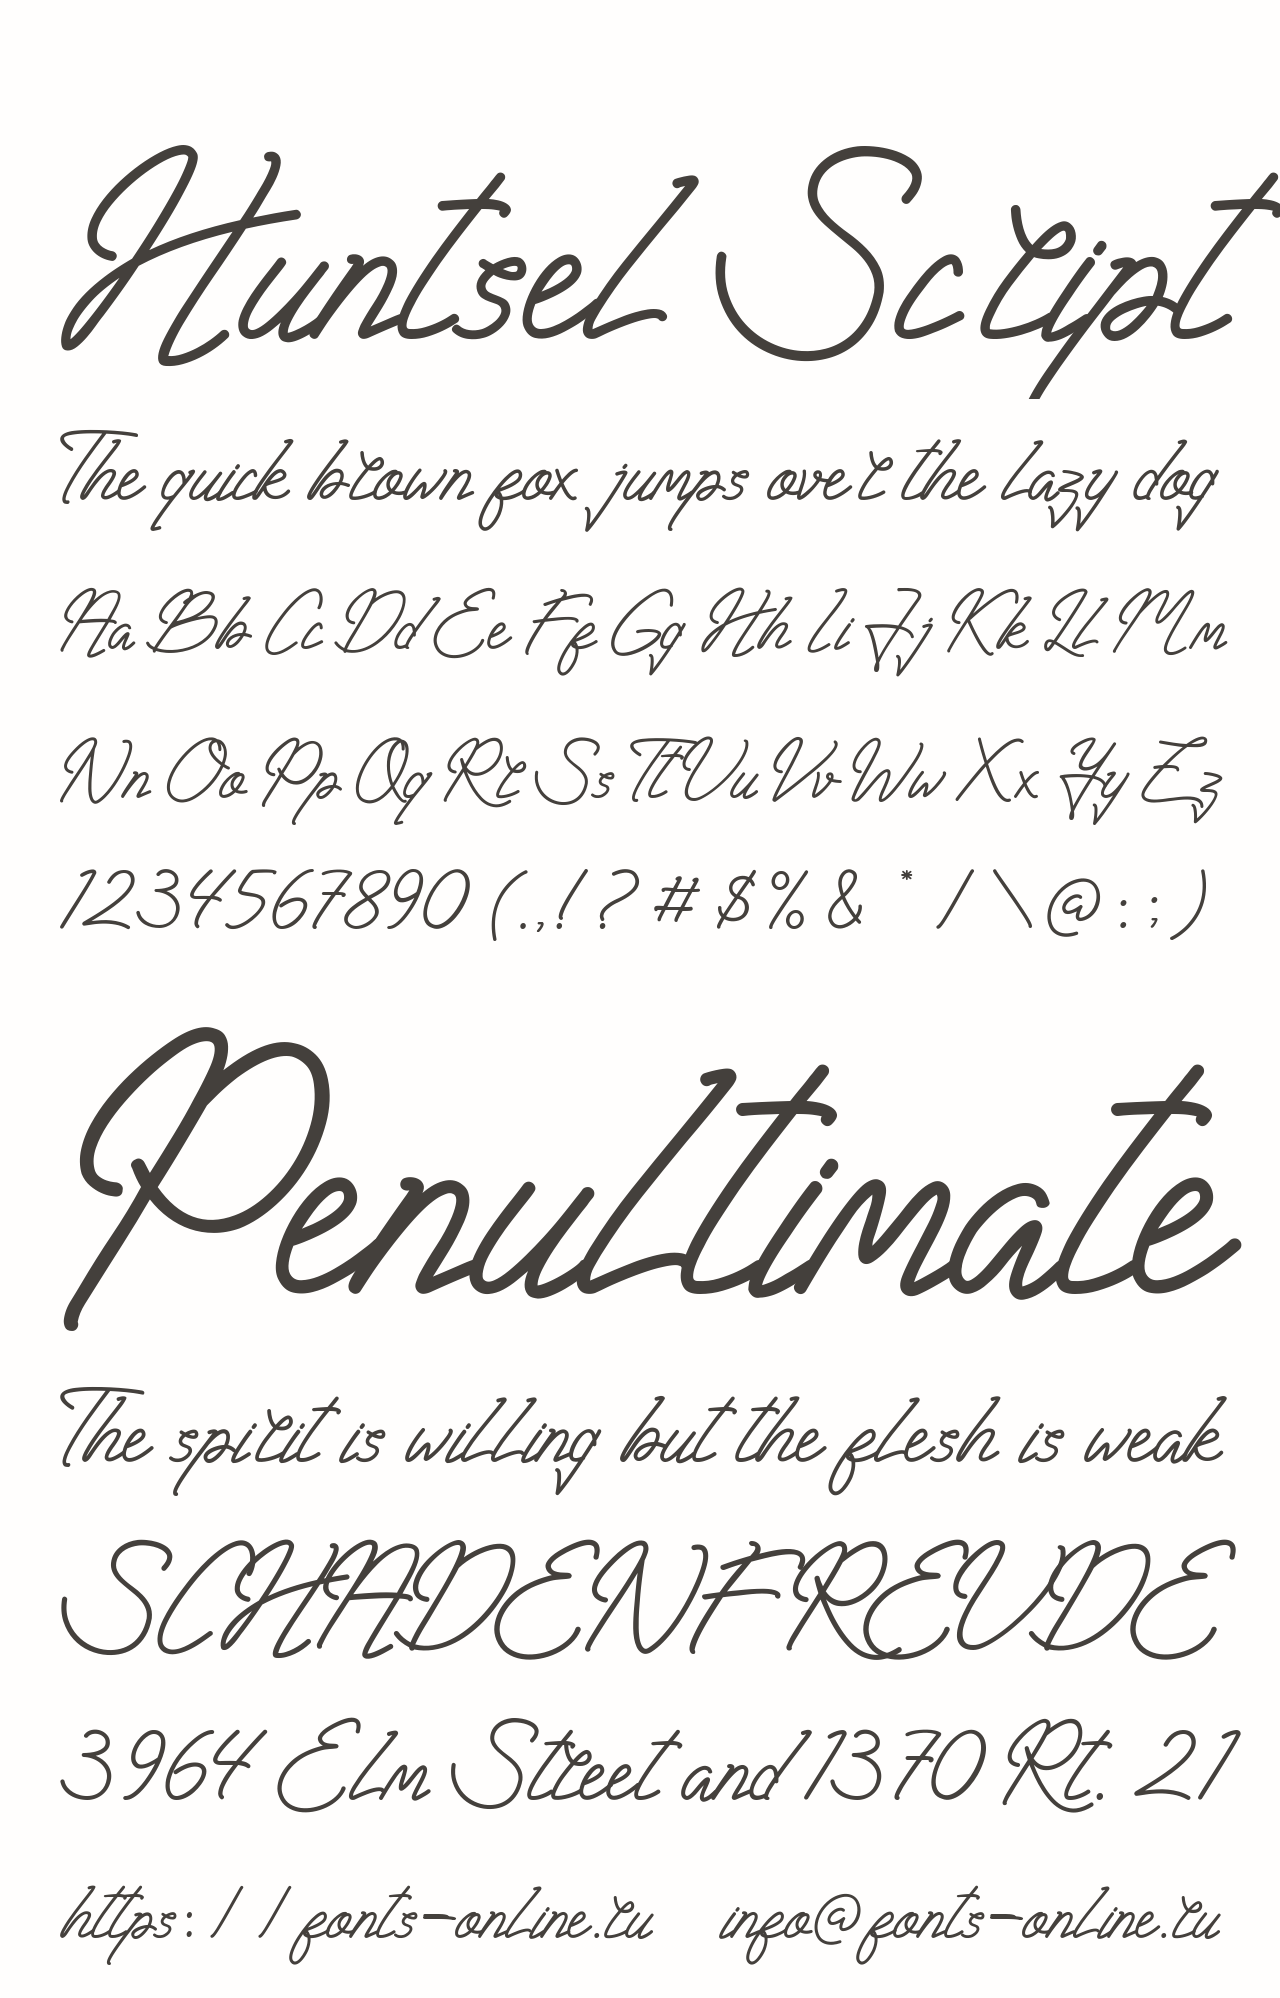 Huntsel Script
The quick brown fox jumps over the lazy dog
Aa Bb Cc Dd Ee Ff Gg Hh Ii Jj Kk Ll Mm
Nn Oo Pp Qq Rr Ss Tt Uu Vv Ww Xx Yy Zz
1234567890 (.,!? # $ % & * / \ @ : ; )
Penultimate
The spirit is willing but the flesh is weak
SCHADENFREUDE
3964 Elm Street and 1370 Rt. 21
https://fonts-online.ru info@fonts-online.ru